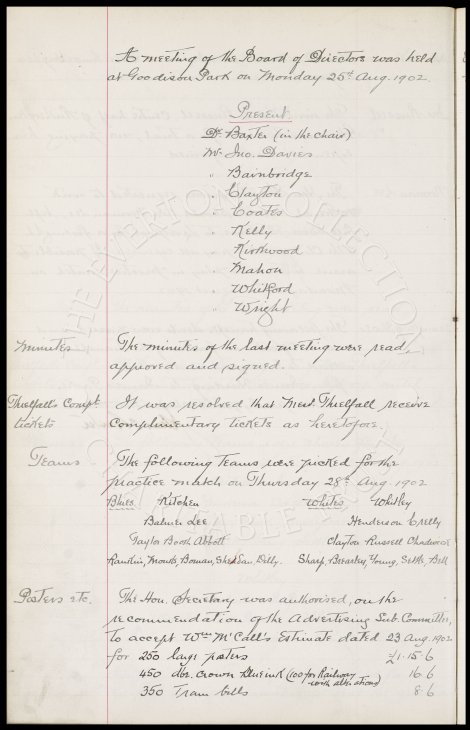 A meeting of the Board of Directors was held
at Goodison Park on Monday 25th Aug. 1902.
Present
Dr. Baxter (in the chair)
Mr. Jno. Davies
" Bainbridge
" Clayton
" Coates
" Kelly
" Kirkwood
" Mahon
" Whitford
" Wright
Minutes The minutes of the last meeting were read,
approved and signed.
Threlfall's Compt. It was resolved that Messrs Threlfall receive
tickets Complimentary tickets as heretofore.
Teams The following Teams were picked for the
practice match on Thursday 28th Aug. 1902
Blues Kitchen Whites Whitley
Balmer Lee Henderson Crelly
Taylor Booth Abbott Clayton Russell Chadwick
Rankin, Bowman, Sheridan, Dilly. Sharp, Brearley, Young, Settle, Bell
Posters etc. The Hon. Secretary was authorised, on the
recommendation of the Advertising Sub. Committee,
to accept Wm McCall's Estimate dated 23 Aug. 1902.
for 250 large posters £1.15.6
450 dbl. crown blue ink (100 for Railway 16.6
with alterations)
350 Tram bills 8.6
THE EVERTON COLLECTION
CHARITABLE TRUST